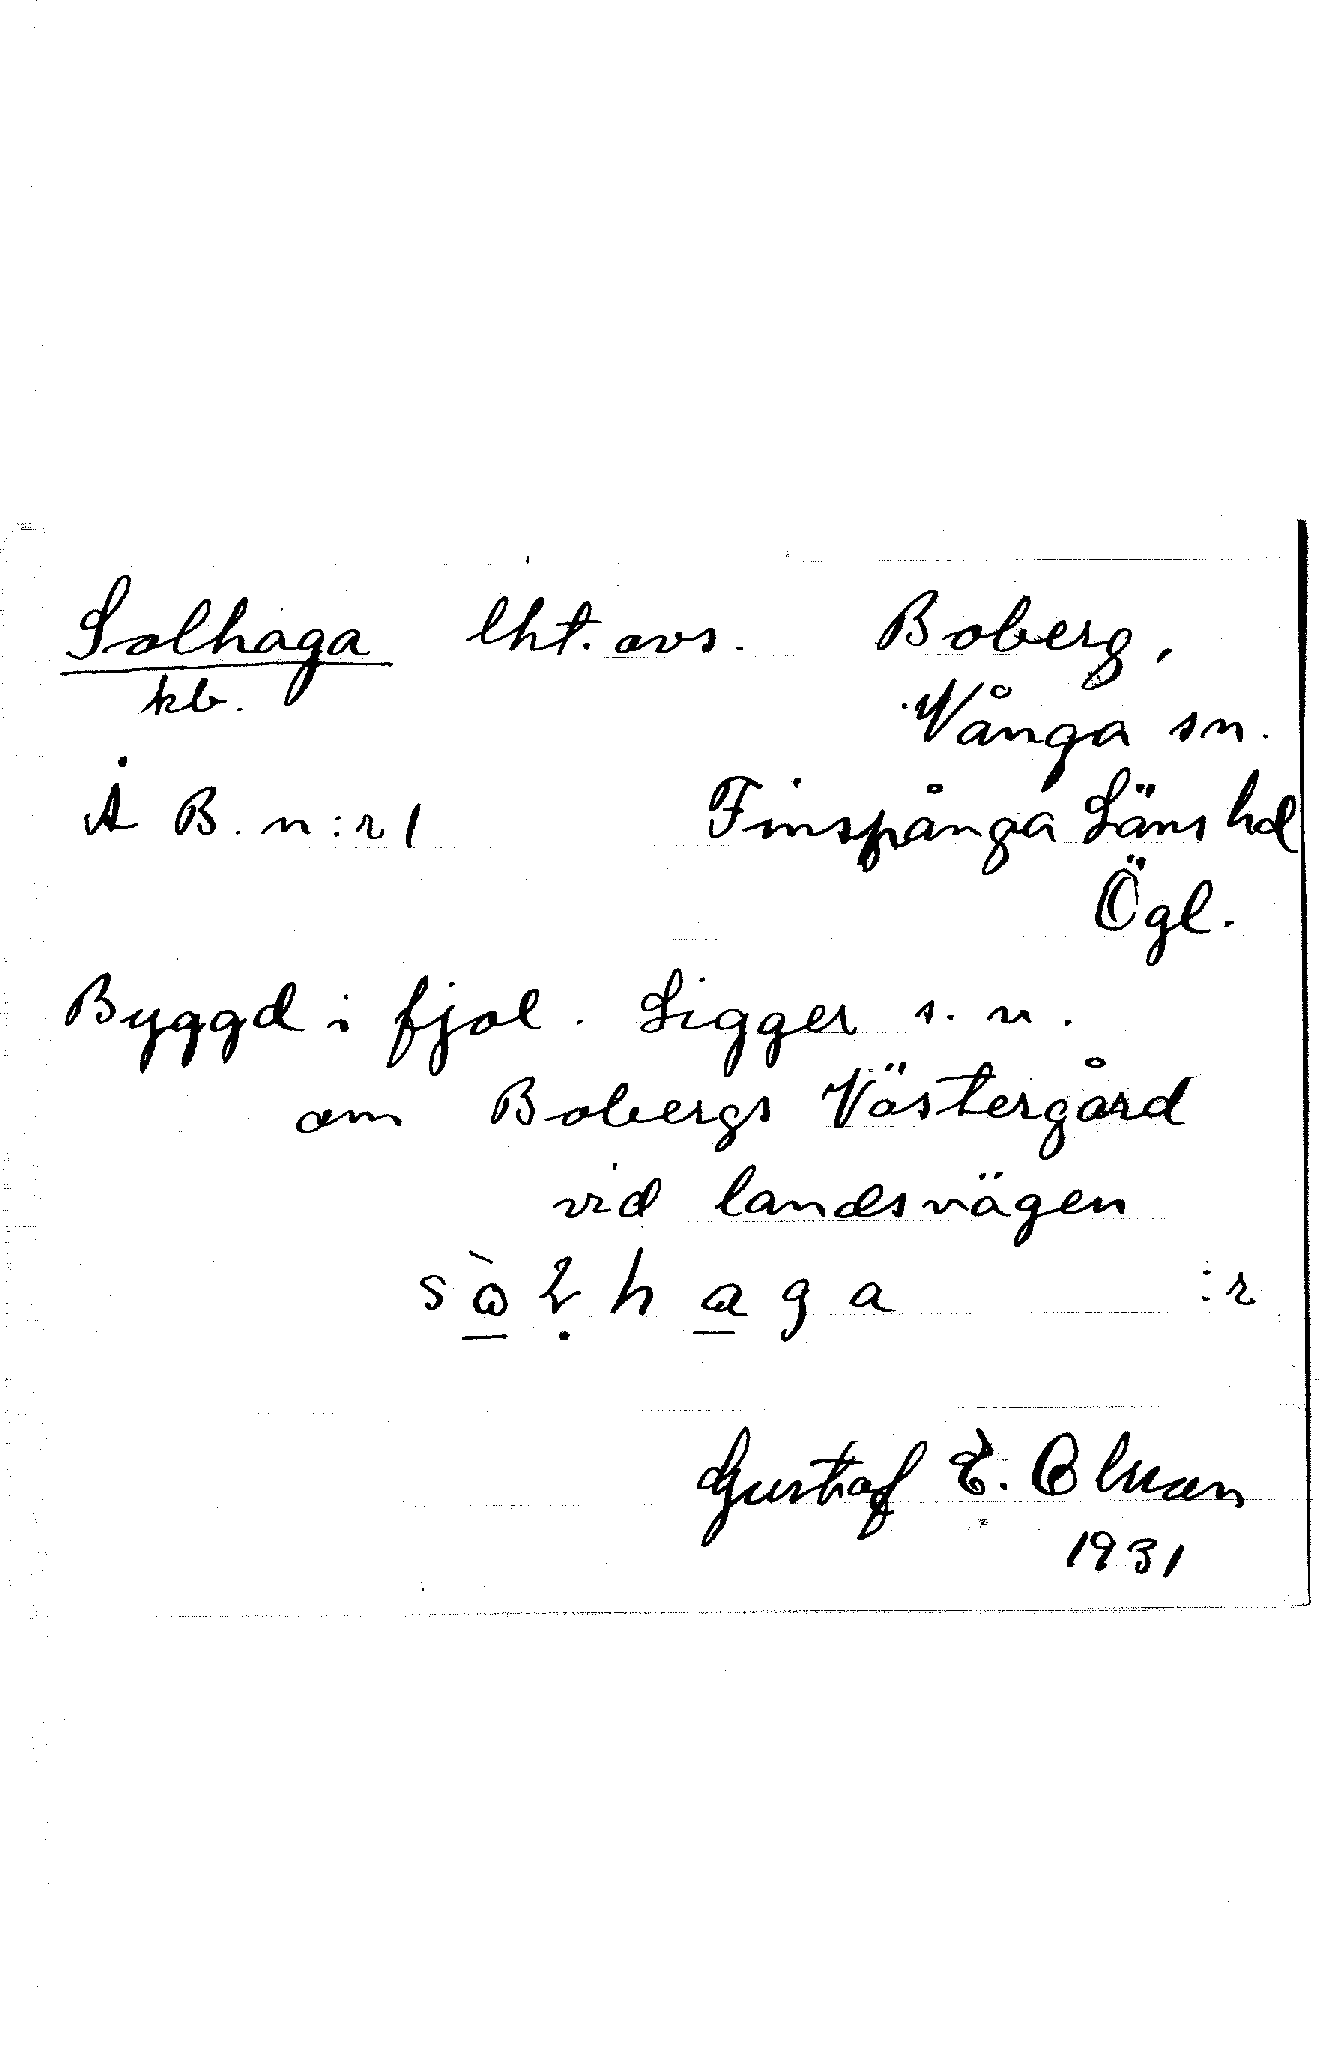 Solhaga lht. avs. Boberg,
kb. Vånga sn.
Å B. n:r 1 Finspånga Läns hd
Ögl.
Byggd i fjol. Ligger s. v.
om Bobergs Västergård
vid landsvägen
haga :r
Gustaf E. Olsson
1931